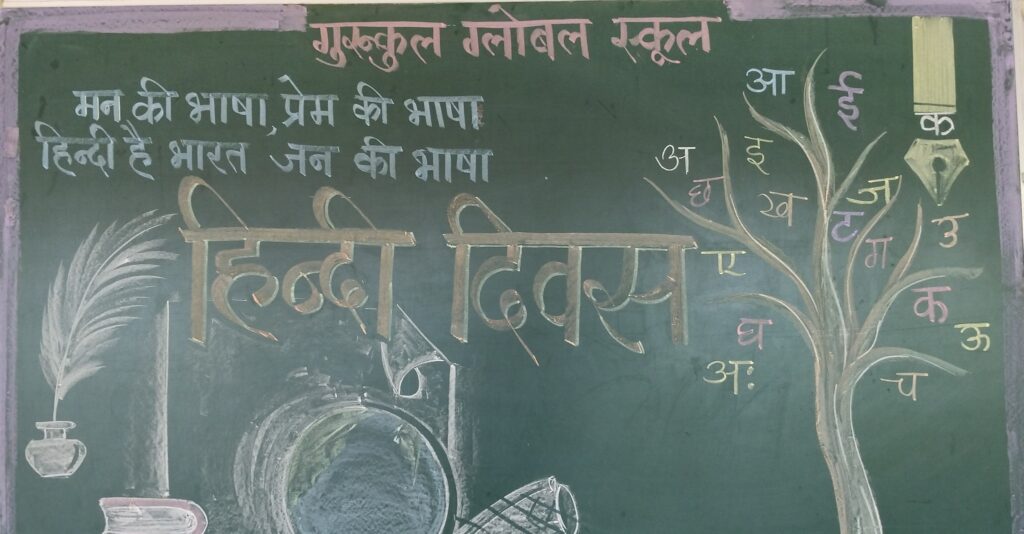 गुरुकुल ग्लोबल स्कूल
मन की भाषा, प्रेम की भाषा
हिन्दी है भारत जन की भाषा
हिन्दी दिवस
आ
ई
क
अ
इ
छ
ख
ज
ट
उ
म
ए
क
घ
ऊ
अः
च